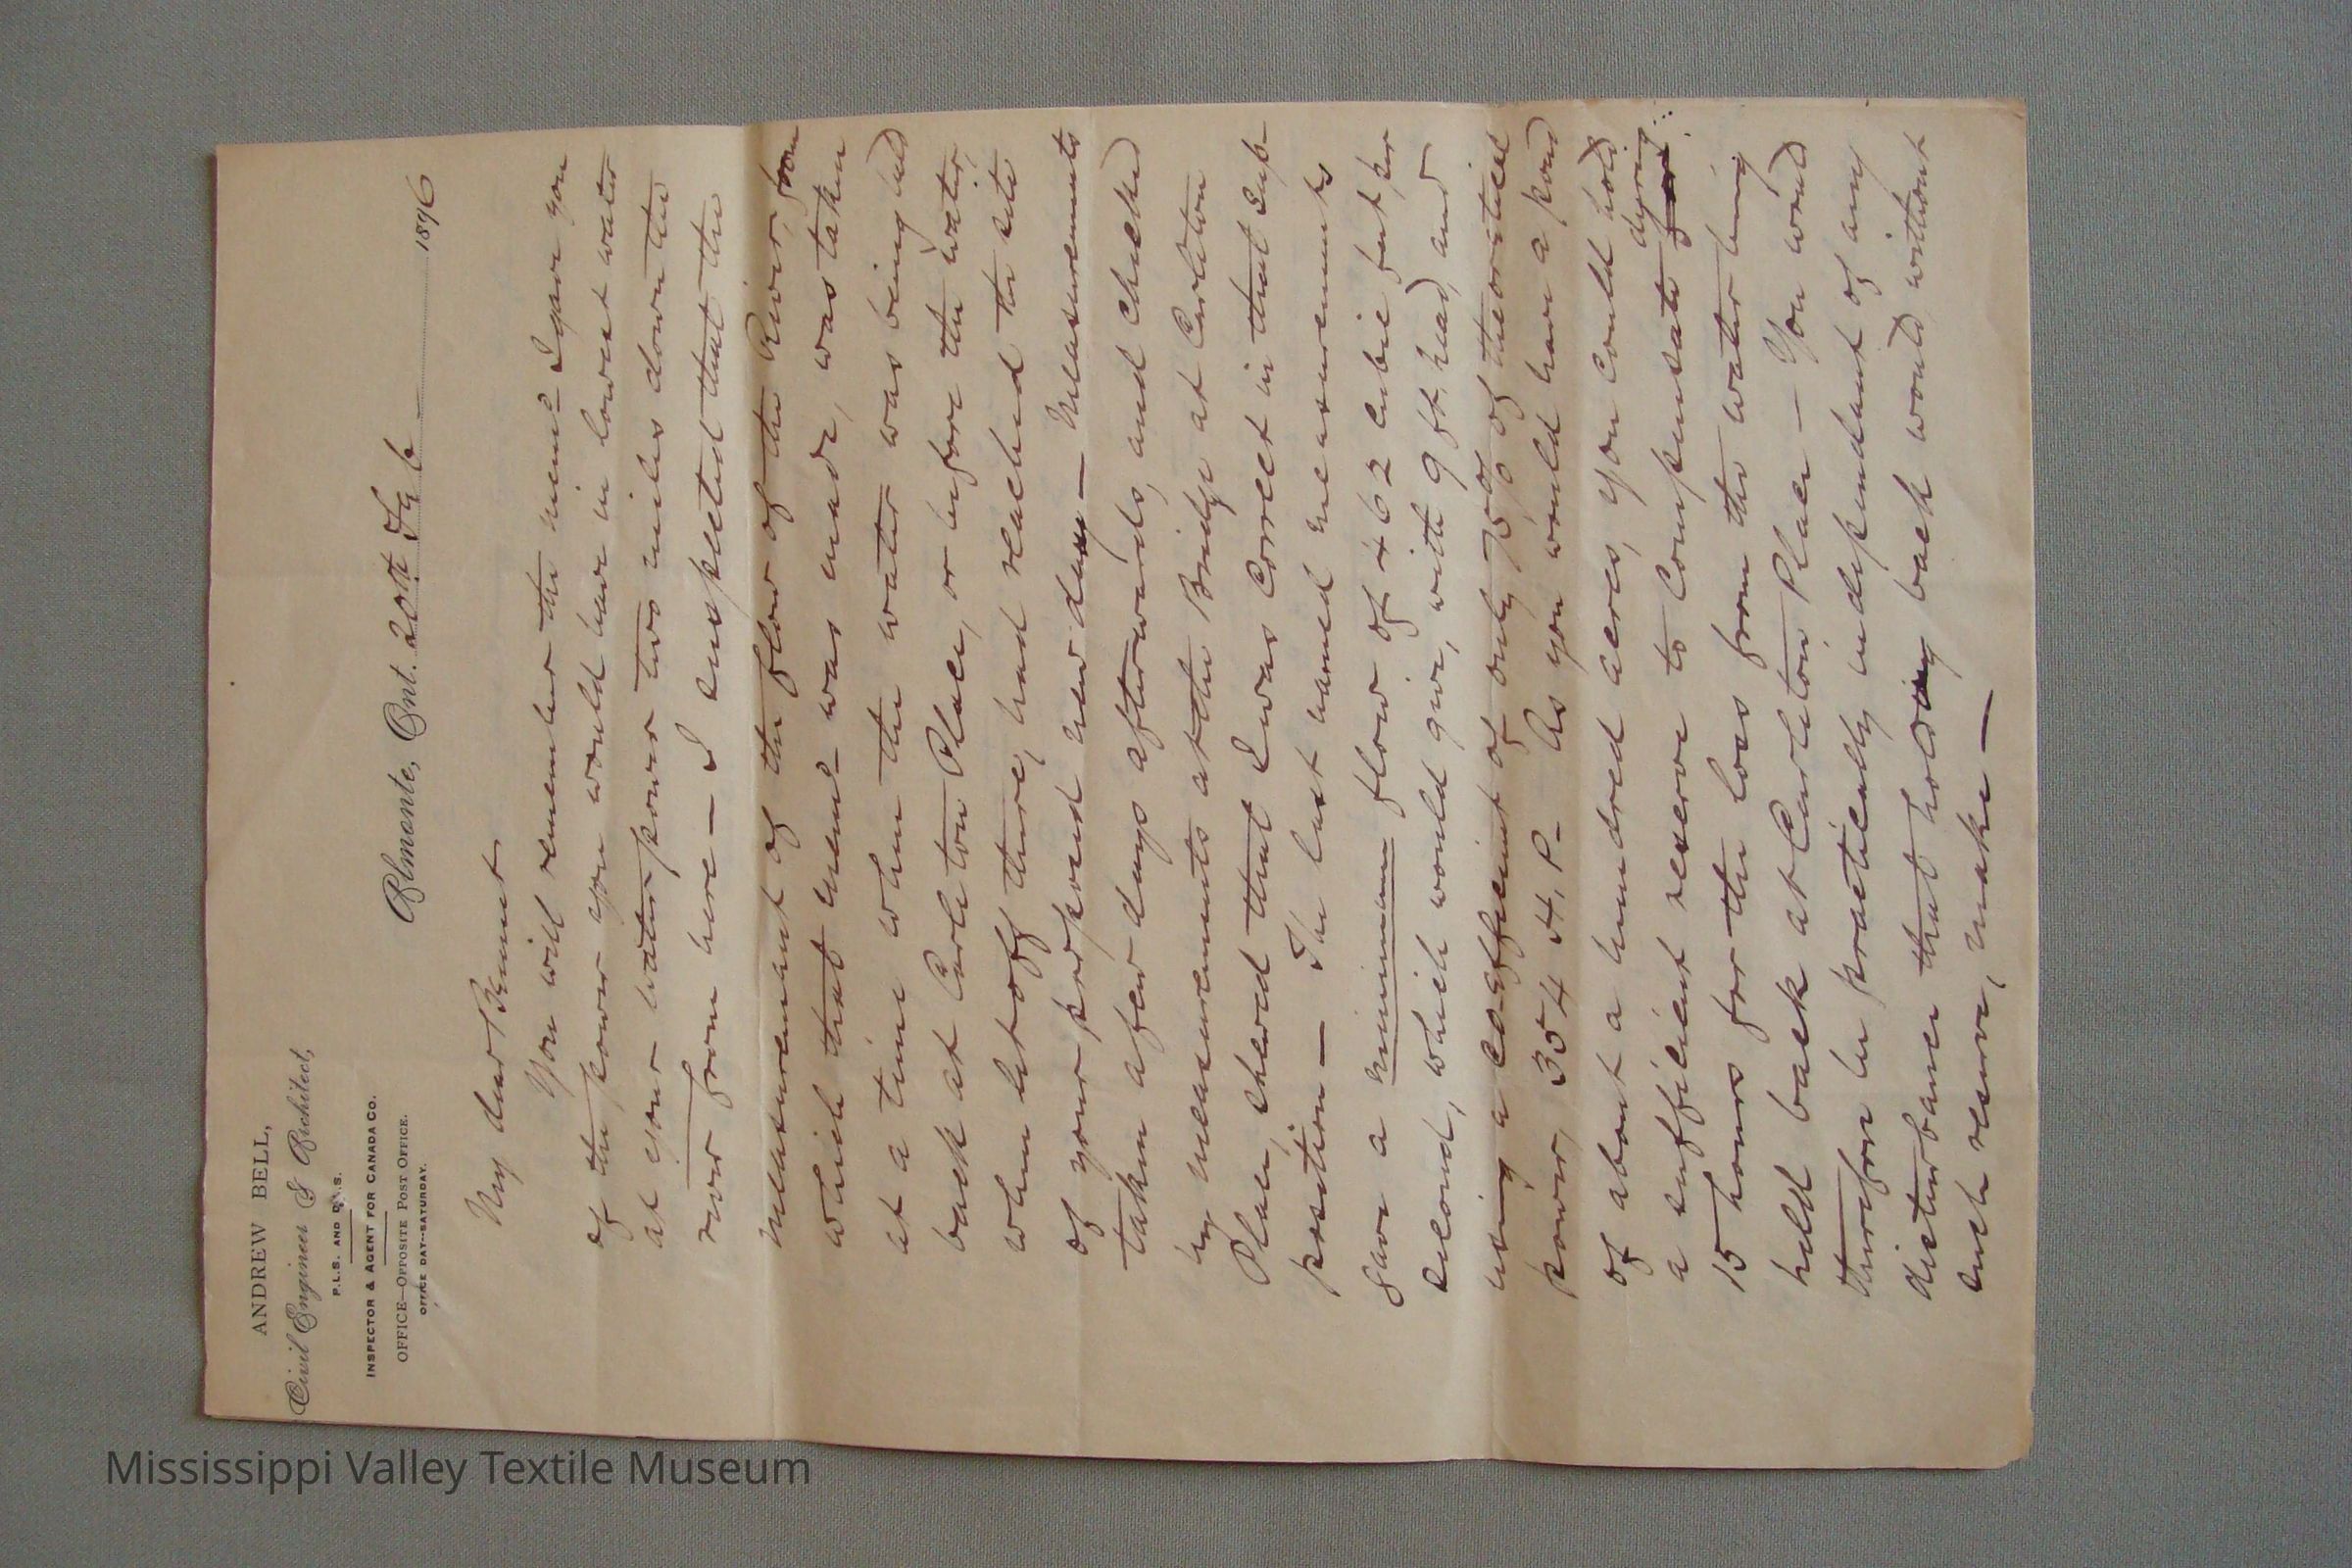 ANDREW BELL,
Civil Engineer & Architect,
P.L.S. AND D.L.S.
INSPECTOR & AGENT FOR CANADA CO.
OFFICE—OPPOSITE POST OFFICE.
OFFICE DAY—SATURDAY.
Almonte, Ont. 20th Feb — 1896
My dear Bennet
You will remember the memo- I gave you
of the power you would have in lowest water
at your water power two miles down the
river from here — I suspected that the
measurement of the flow of the River, from
which that memo- was made, was taken
at a time when the water was being held
back at Carleton Place, or before the water,
when let off there, had reached the site
of your proposed new dam — Measurements
taken a few days afterwards, and checked
by measurements at the Bridge at Carleton
Place, showed that I was correct in that sup-
position — The last named measurements
gave a minimum flow of 462 cubic feet per
second, which would give, with 9 ft. head, and
using a co-efficient of only 75% of theoretical
power, 354 H.P- As you would have a pond
of about a hundred acres, you could hold
a sufficient reserve to compensate during
15 hours for the loss from the water being
held back at Carleton Place — You would
therefore be practically independant of any
disturbance that holding back would, without
such reserve, make —
Mississippi Valley Textile Museum